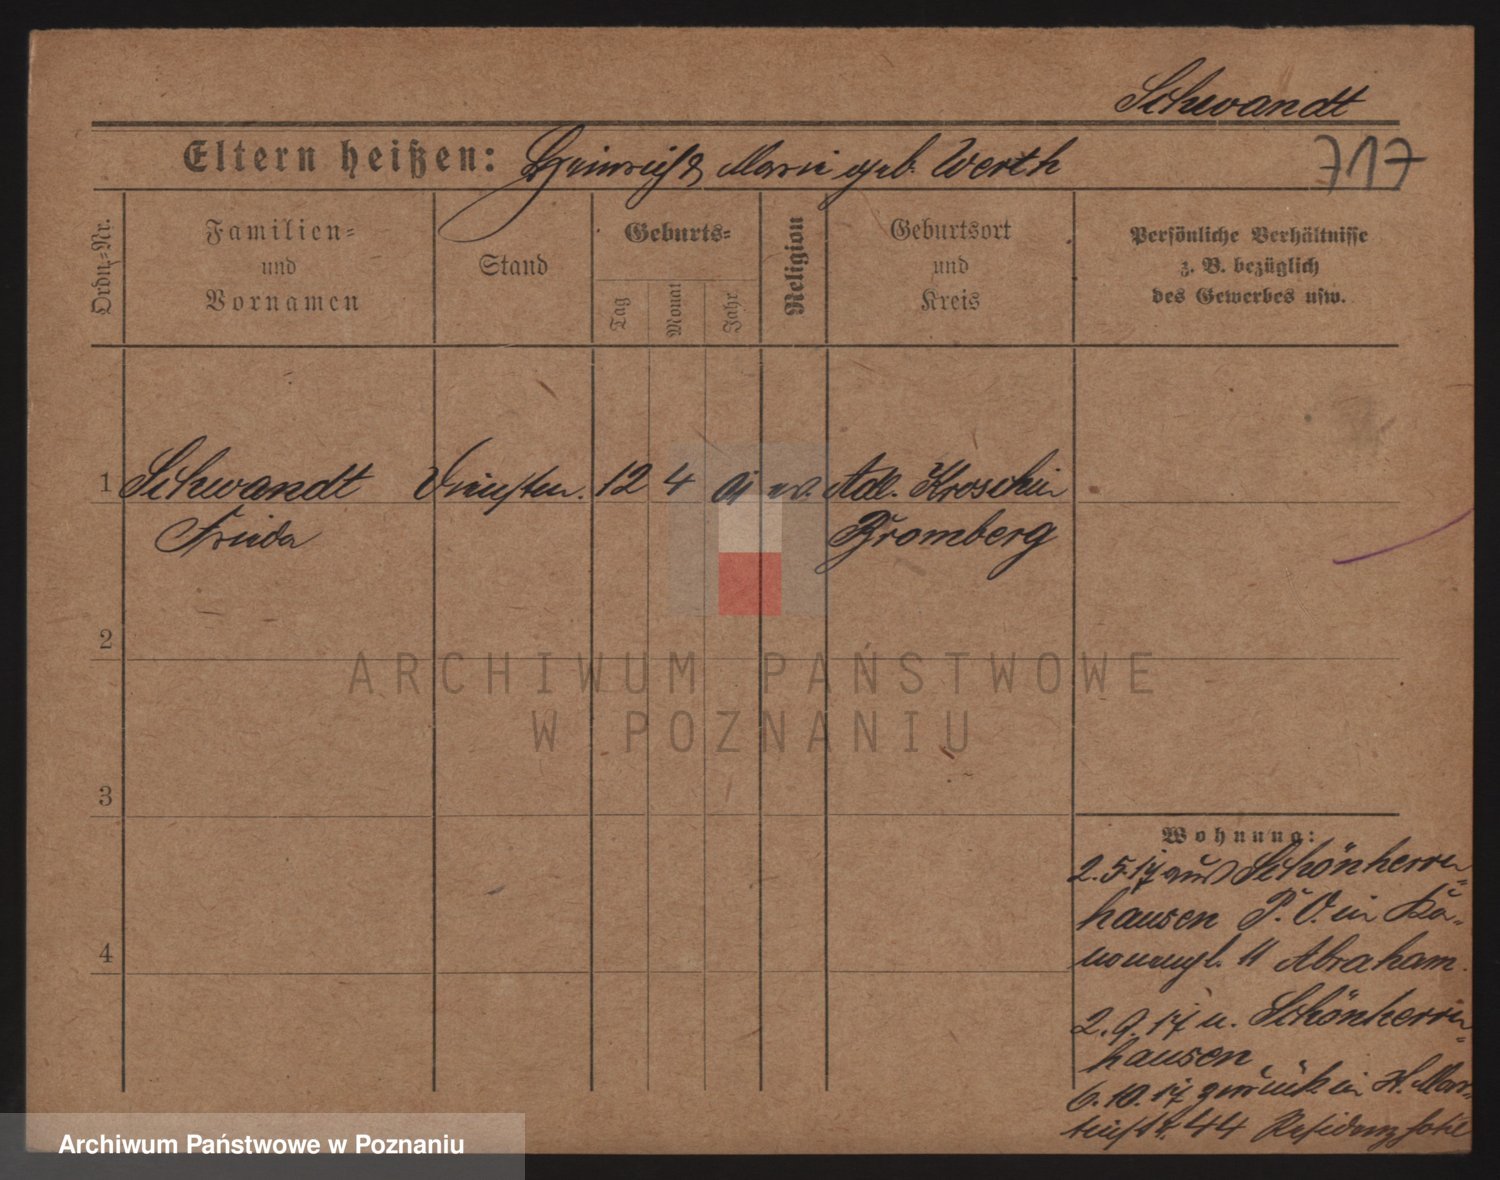 Schwandt
Eltern heißen: Heinrich & Marie geb. Werth
717
Ordn.-Nr.
Familien-
und
Vornamen
Stand
Geburts-
Tag
Monat
Jahr
Religion
Geburtsort
und
Kreis
Persönliche Verhältnisse
z. B. bezüglich
des Gewerbes usw.
1 Schwandt 12 4 Adl. Kroschin
Frieda Bromberg
2
3
4
Wohnung:
2. 5. 17 aus Schönherrn-
hausen P. O. in
11 Abraham.
2. 9. 17 n. Schönherrn-
hausen
6. 10. 17 zurück in St. Mar-
tinstr. 44
ARCHIWUM PAŃSTWOWE
W POZNANIU
Archiwum Państwowe w Poznaniu